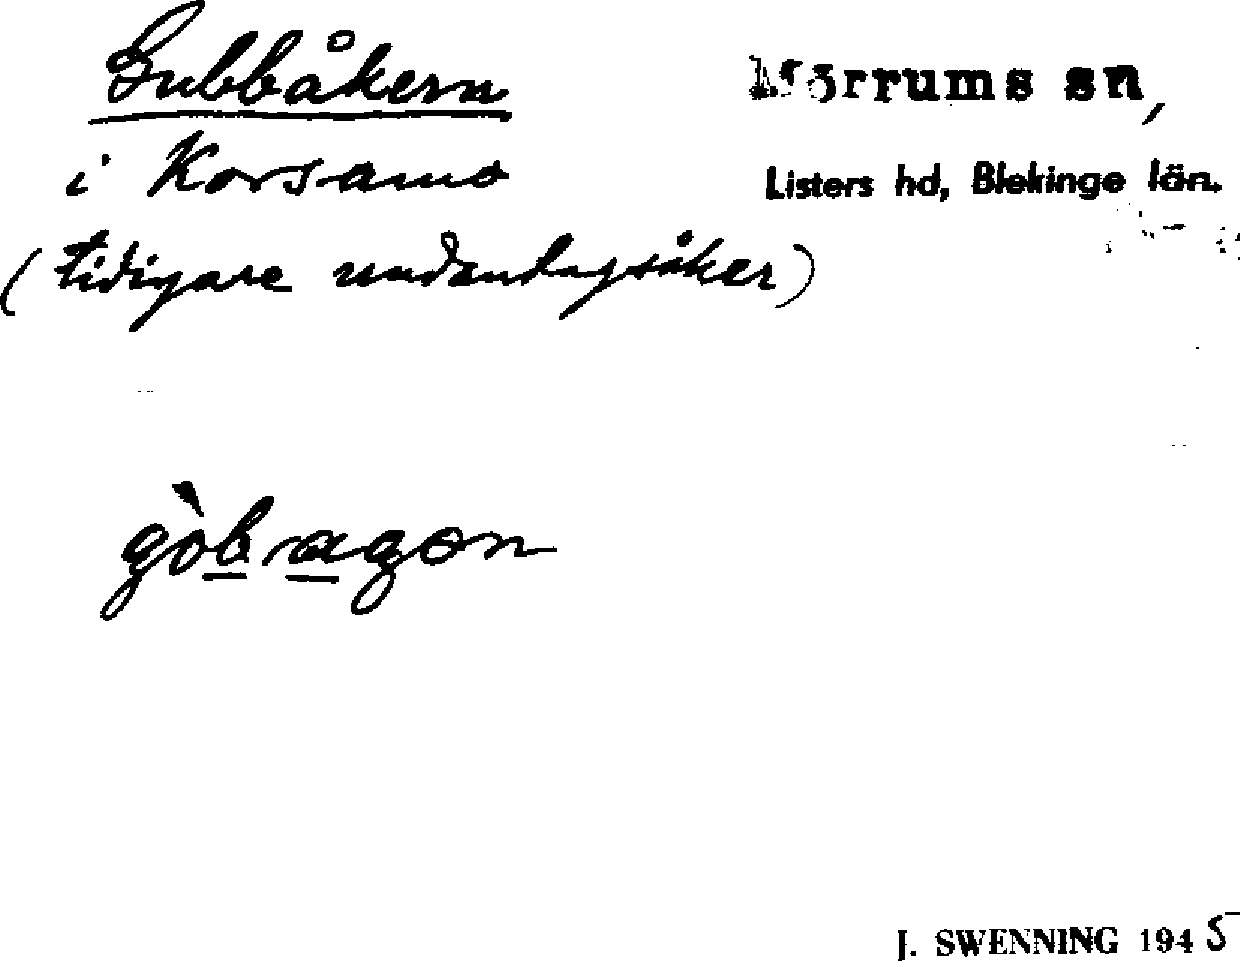 Gubbåkern
Mörrums sn,
i Korsamo
Listers hd, Blekinge län.
(tidigare undantagsåker)
gòbragən
J. SWENNING 1945